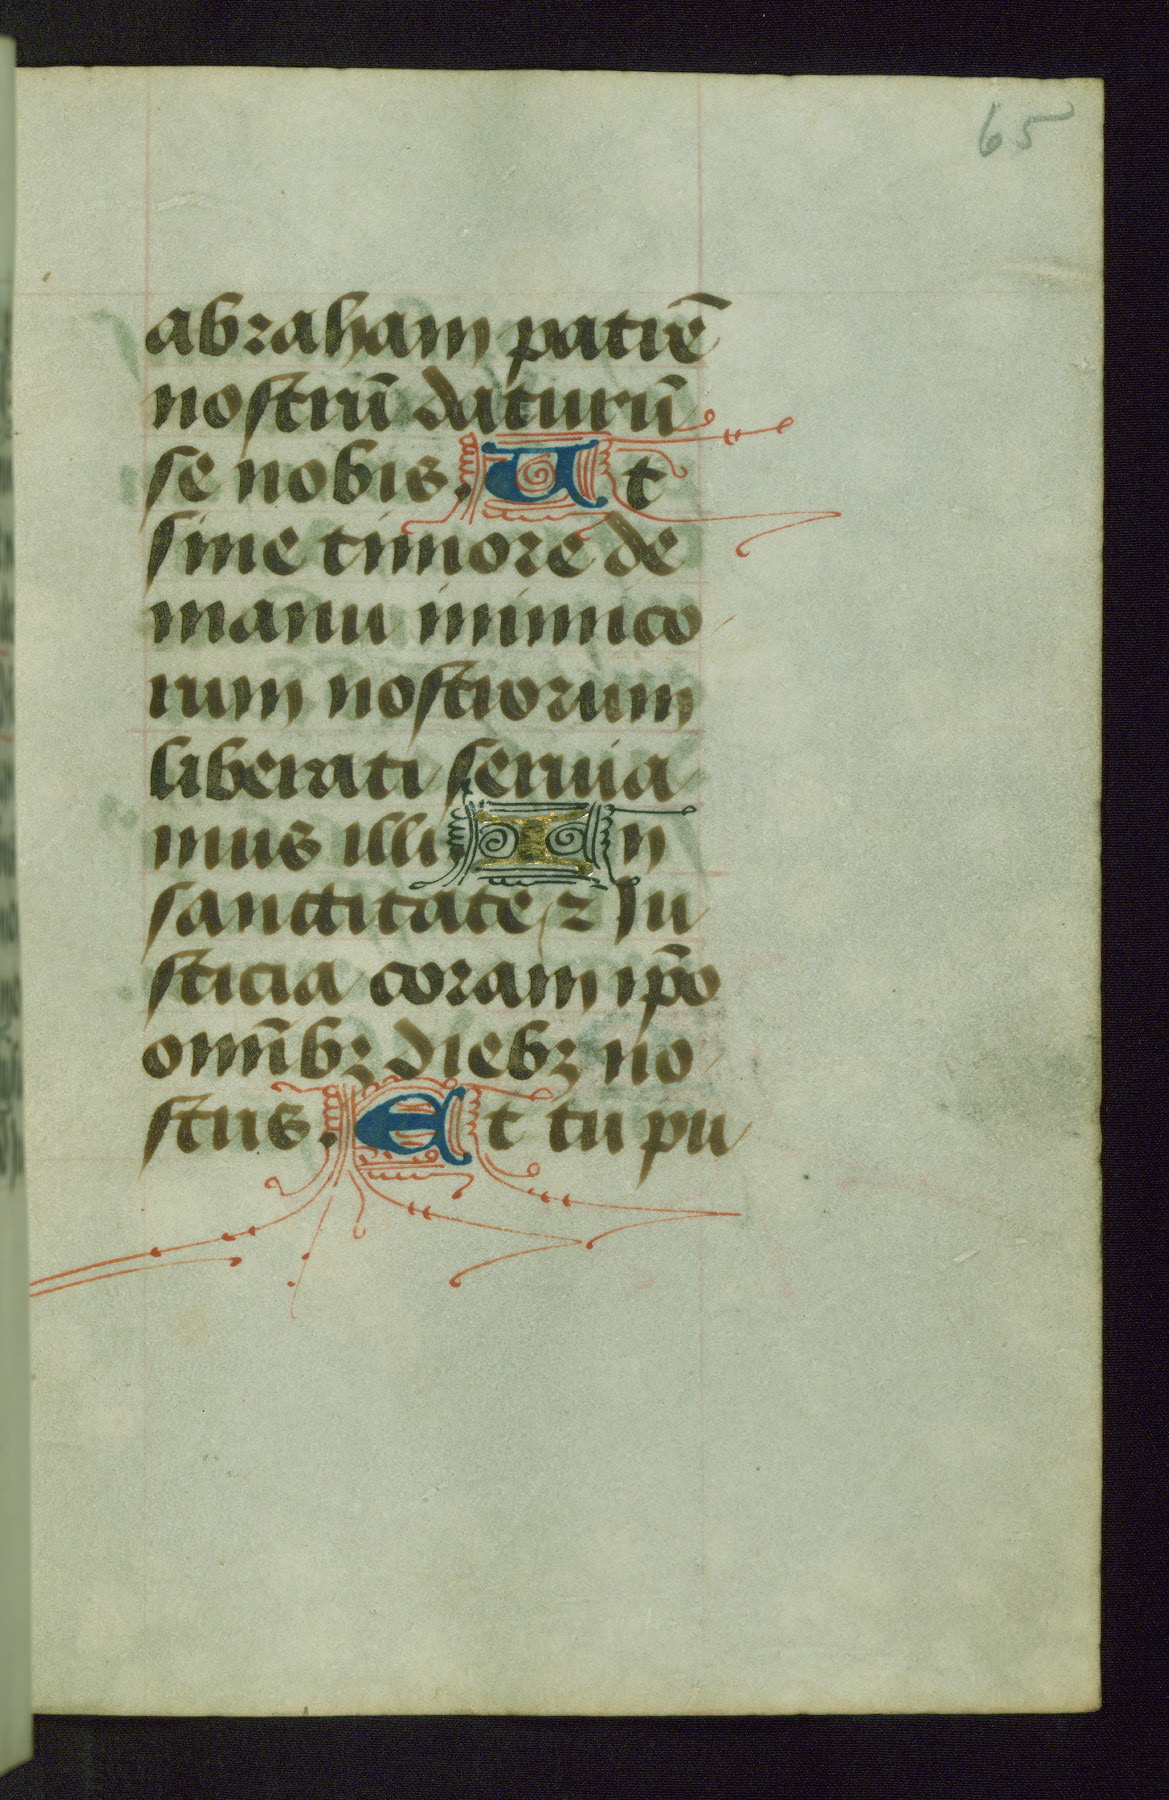 65
abraham patrē
nostrū daturū
se nobis. Ut
sine timore de
manu inimico
rum nostrorum
liberati seruia
mus illi. In
sanctitate ⁊ Iu
sticia coram ip̄o
omīb⁊ dieb⁊ no
stris. Et tu pu